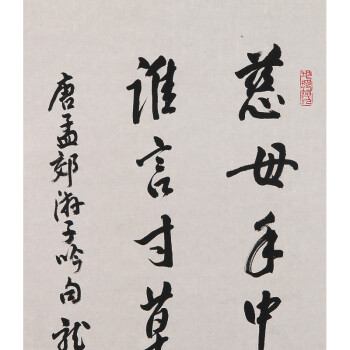 慈母手中
谁言寸草
唐孟郊游子吟句龍